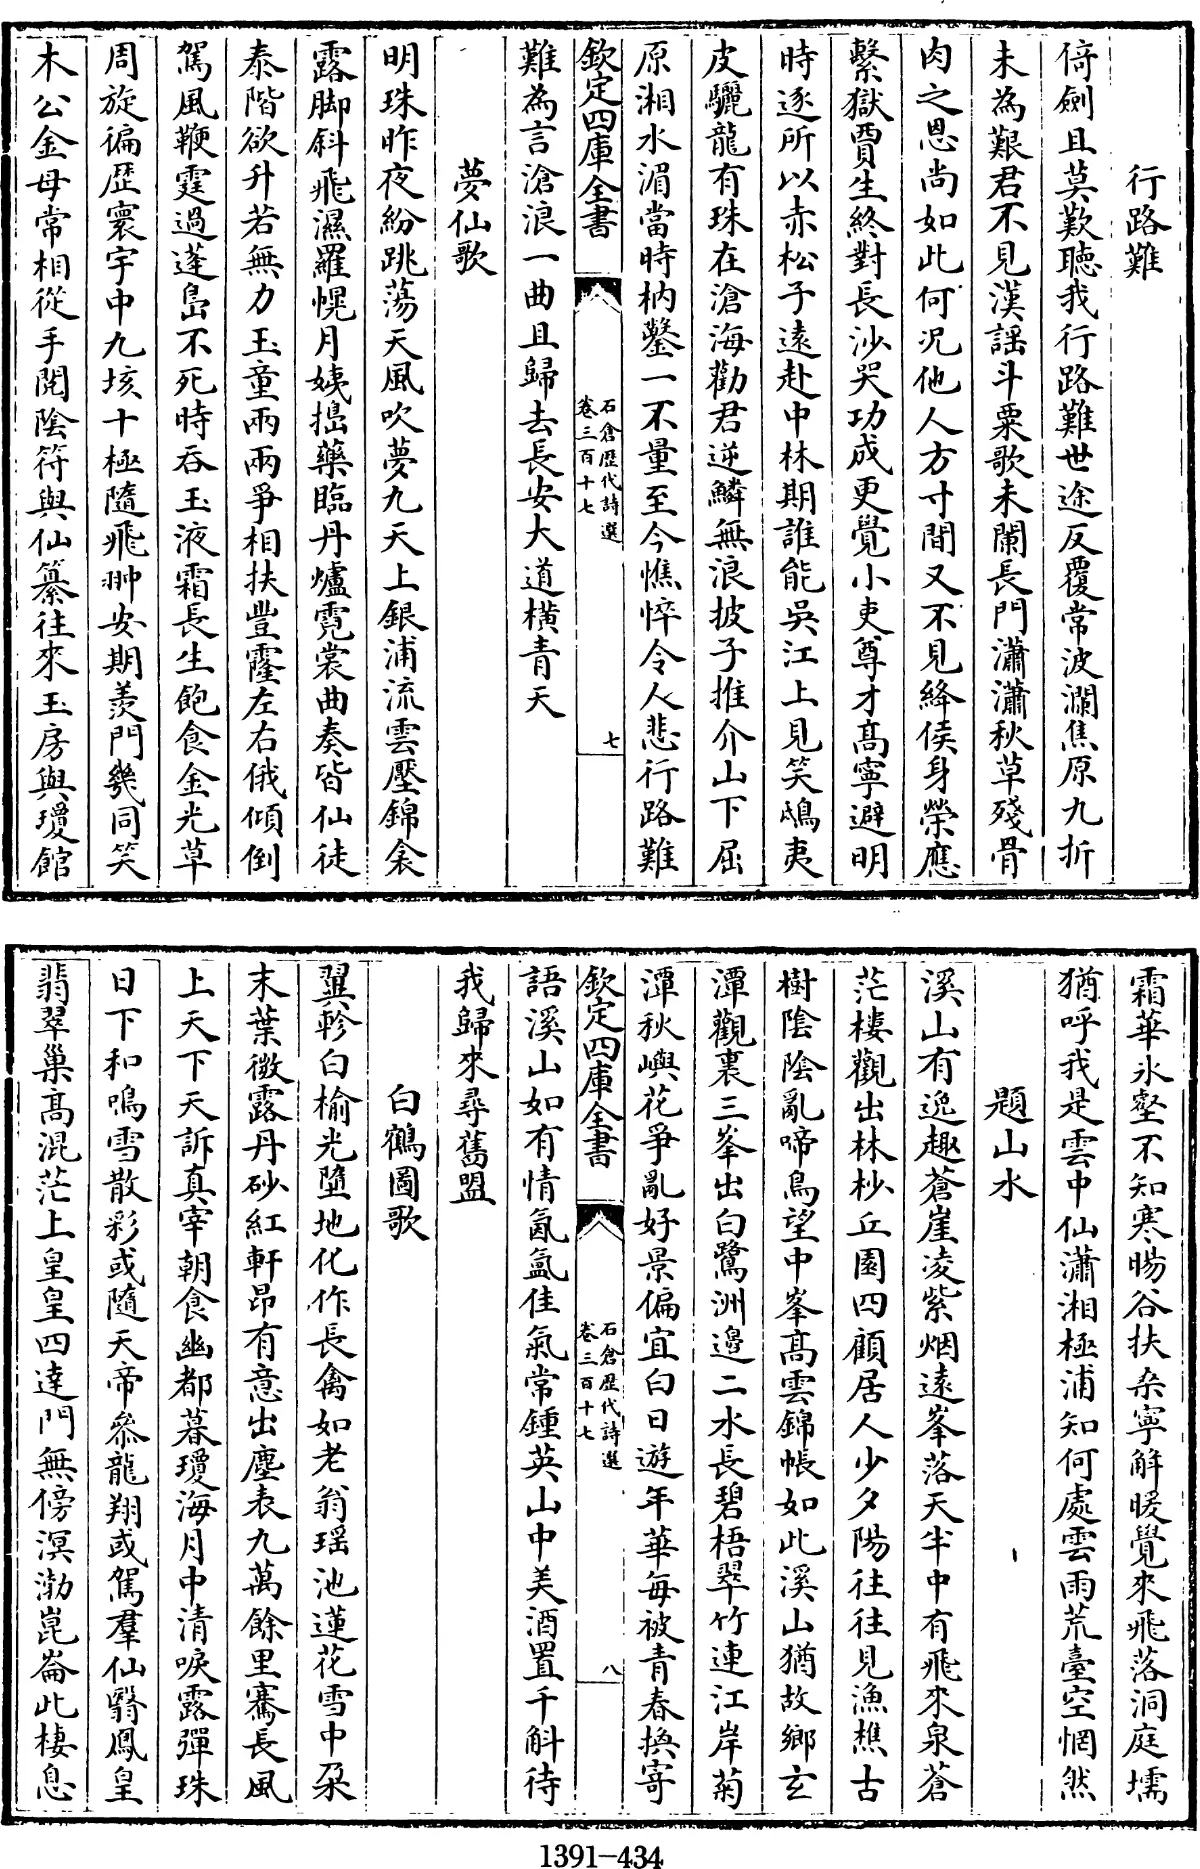 行路難
倚劍且莫歎聽我行路難世途反覆常波瀾焦原九折
未為艱君不見漢謡斗粟歌未闌長門瀟瀟秋草殘骨
肉之恩尚如此何況他人方寸間又不見絳侯身榮應
繫獄賈生終對長沙哭功成更覺小吏尊才高寧避明
時逐所以赤松子遠赴中林期誰能吳江上見笑鴟夷
皮驪龍有珠在滄海勸君逆鱗無浪披子推介山下屈
原湘水湄當時枘鑿一不量至今憔悴令人悲行路難
欽定四庫全書
石倉歴代詩選
卷三百十七
七
難為言滄浪一曲且歸去長安大道横青天
夢仙歌
明珠昨夜紛跳蕩天風吹夢九天上銀浦流雲壓錦衾
露脚斜飛濕羅幌月姨搗藥臨丹爐霓裳曲奏皆仙徒
泰階欲升若無力玉童兩兩爭相扶豐霳左右俄傾倒
駕風鞭霆過蓬島不死時吞玉液霜長生飽食金光草
周旋徧歴寰宇中九垓十極隨飛翀安期羨門幾同笑
木公金母常相從手閱陰符與仙纂往來玉房與瓊館
霜華氷壑不知寒暘谷扶桑寧解暖覺來飛落洞庭壖
猶呼我是雲中仙瀟湘極浦知何處雲雨荒臺空惘然
題山水
溪山有逸趣蒼崖凌紫烟遠峯落天半中有飛來泉蒼
茫樓觀出林杪丘園四顧居人少夕陽往往見漁樵古
樹陰陰亂啼鳥望中峯高雲錦帳如此溪山猶故鄉玄
潭觀裏三峯出白鷺洲邉二水長碧梧翠竹連江岸菊
潭秋嶼花爭亂好景偏宜白日遊年華每被青春換寄
欽定四庫全書
石倉歴代詩選
卷三百十七
八
語溪山如有情氤氳佳氣常鍾英山中美酒置千斛待
我歸來尋舊盟
白鶴圖歌
翼軫白榆光墮地化作長禽如老翁瑶池蓮花雪中朶
末葉微露丹砂紅軒昂有意出塵表九萬餘里騫長風
上天下天訴真宰朝食幽都暮瓊海月中清唳露彈珠
日下和鳴雪散彩或隨天帝叅龍翔或駕羣仙翳鳳皇
翡翠巢髙混茫上皇皇四達門無傍溟渤崑崙此棲息
1391-434